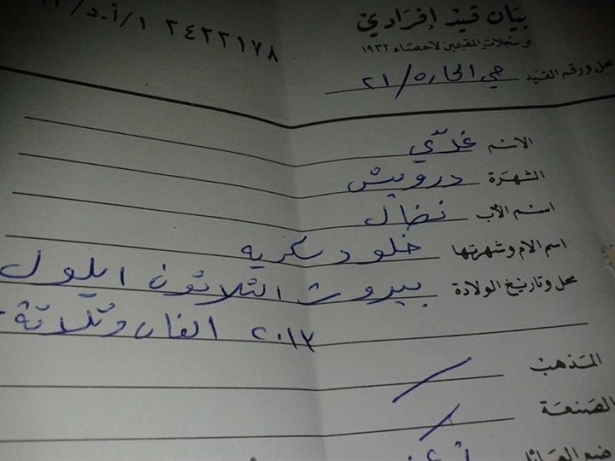 بيان قيد إفرادي
٣٤٢٣١٧٨ ١/أ.د/
عن سجلات المقيمين لاحصاء ١٩٣٢
محل ورقم القيد حي الحاره/٢١
الاسم غدي
الشهرة درويش
اسم الأب نضال
اسم الام وشهرتها خلود سكريه
محل وتاريخ الولادة بيروت الثلاثون ايلول
٢٠١٣ الفان وثلاثة
المذهب /
الصنعة /